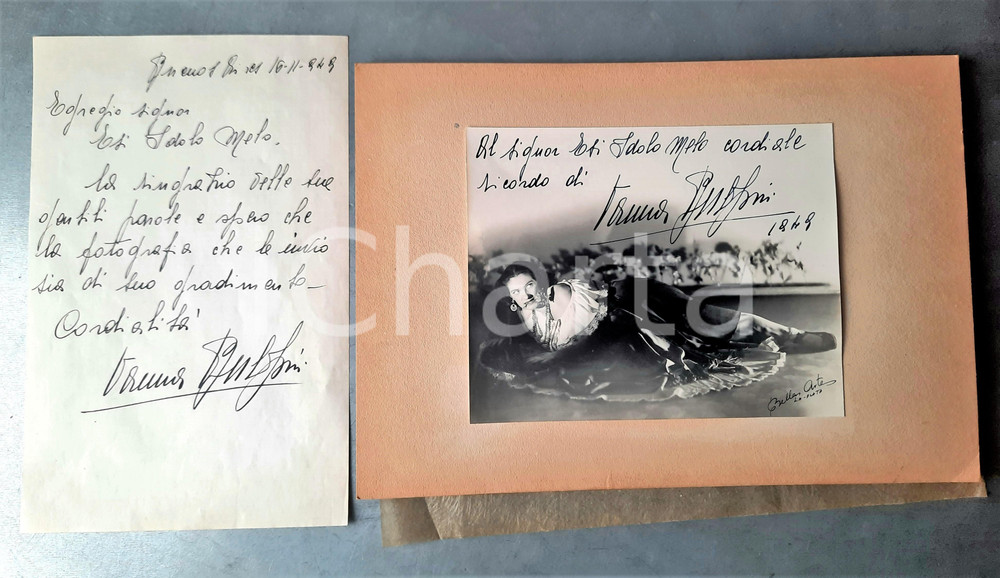 Buenos Aires 16-11-949
Egregio signor
Esi Idolo Melo.
la ringrazio delle sue
gentili parole e spero che
la fotografia che le invio
sia di suo gradimento_
Cordialità
Al signor Esi Idolo Melo cordiale
ricordo di
1949
Charta
Bellas Artes
LA PLATA